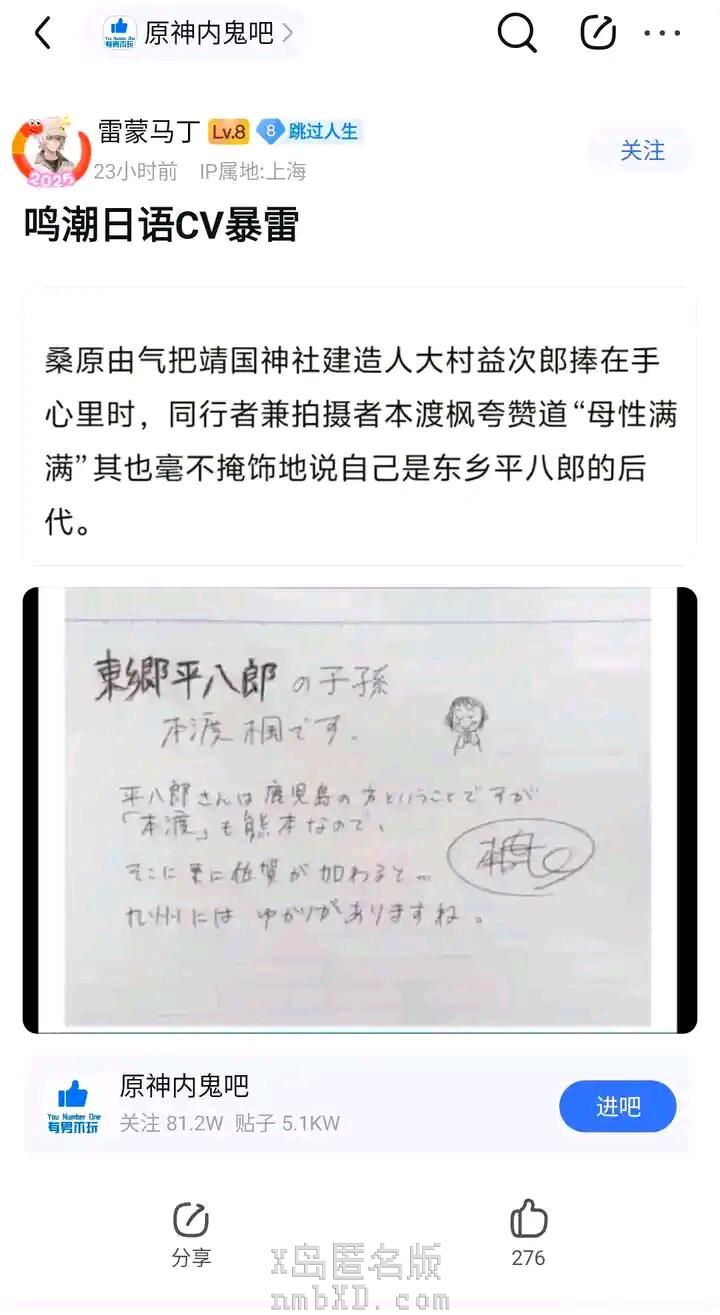 原神内鬼吧
雷蒙马丁 Lv.8 8 跳过人生
23小时前 IP属地:上海
关注
2025
鸣潮日语CV暴雷
桑原由气把靖国神社建造人大村益次郎捧在手
心里时，同行者兼拍摄者本渡枫夸赞道“母性满
满”其也毫不掩饰地说自己是东乡平八郎的后
代。
東郷平八郎の子孫
本渡楓です.
平八郎さんは鹿児島の方ということですが
「本渡」も熊本なので、
そこに更に佐賀が加わると…
九州にはゆかりがありますね。
原神内鬼吧
You Number One
有男不玩
关注 81.2W 贴子 5.1KW
进吧
分享
276
X岛匿名版
nmbXD.com